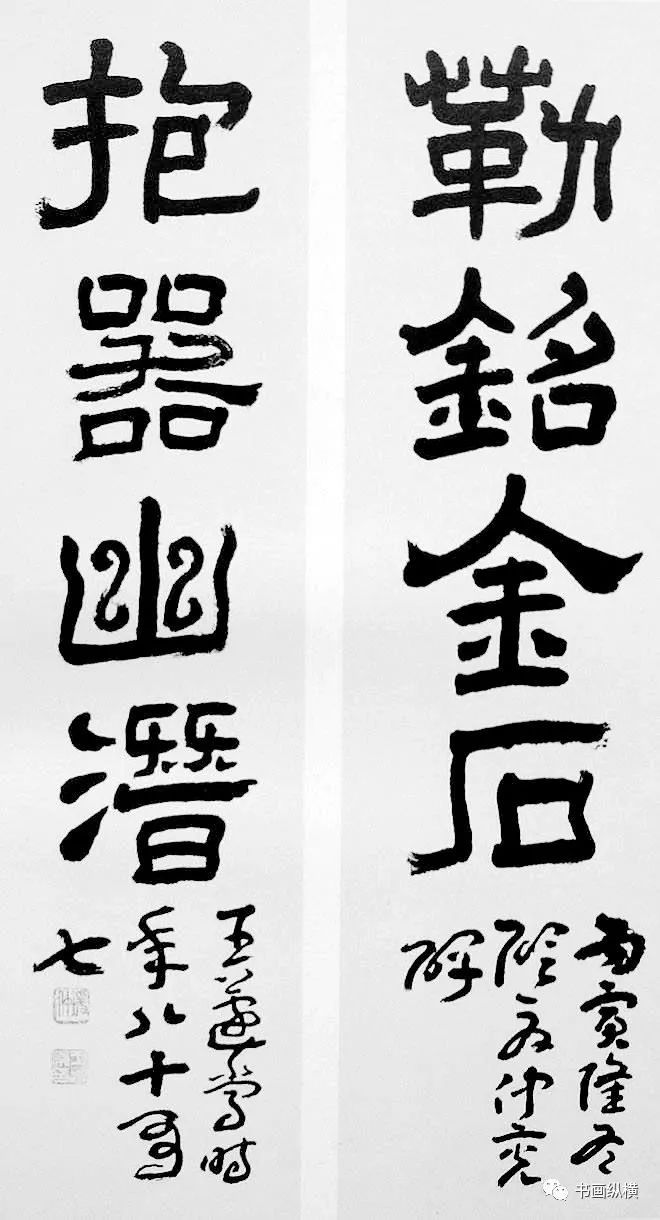 勒銘金石
丙寅隆冬
仲
抱器幽潛
王蘧常時
年八十有
七
书画纵横